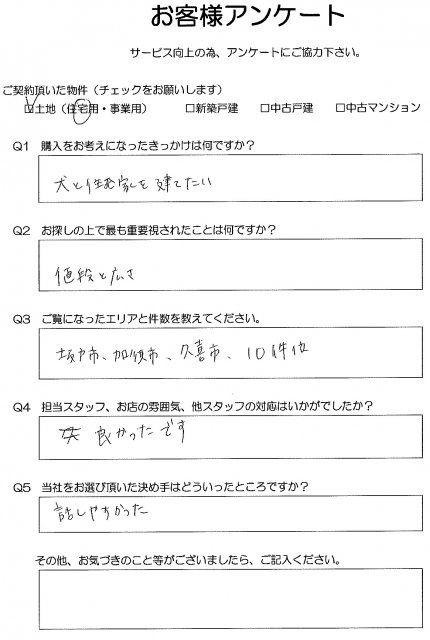 お客様アンケート
サービス向上の為、アンケートにご協力下さい。
ご契約頂いた物件（チェックをお願いします）
☑土地（住宅用・事業用） □新築戸建 □中古戸建 □中古マンション
Q1 購入をお考えになったきっかけは何ですか？
犬と住む家を建てたい
Q2 お探しの上で最も重要視されたことは何ですか？
値段と広さ
Q3 ご覧になったエリアと件数を教えてください。
坂戸市、加須市、久喜市、10件位
Q4 担当スタッフ、お店の雰囲気、他スタッフの対応はいかがでしたか？
良かったです
Q5 当社をお選び頂いた決め手はどういったところですか？
話しやすかった
その他、お気づきのこと等がございましたら、ご記入ください。